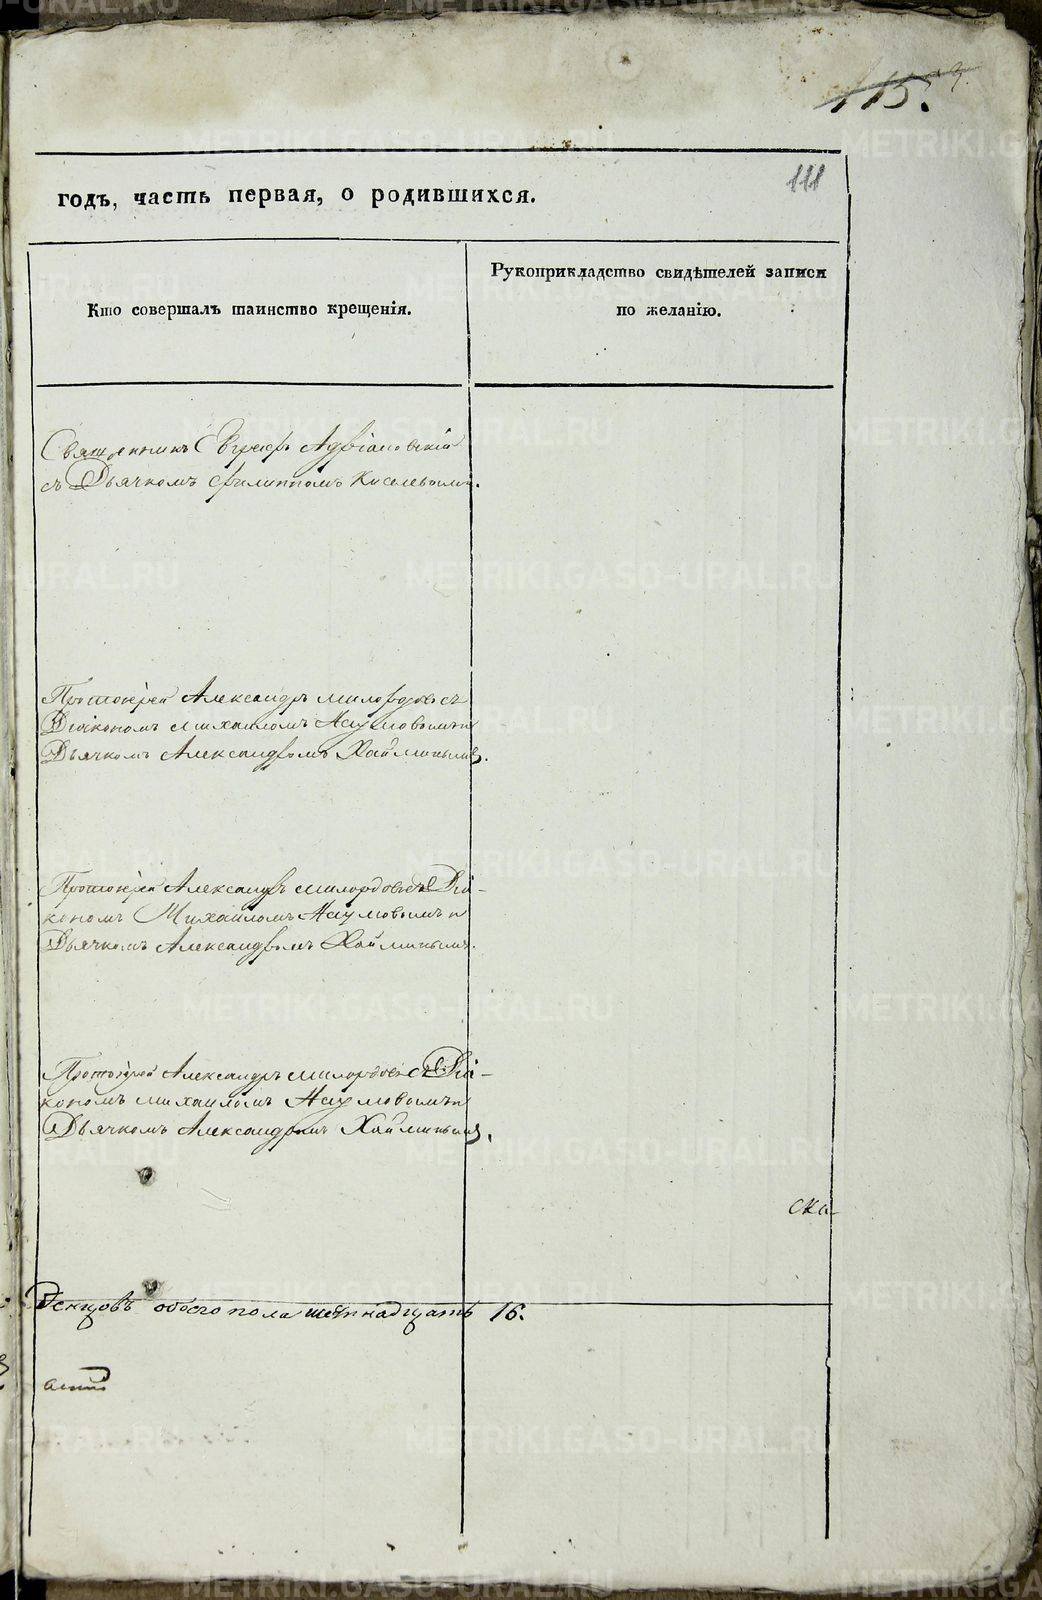 115.
111
годъ, часть первая, о родившихся.
Кто совершалъ таинство крещенія.
Рукоприкладство свидѣтелей записи
по желанію.
Священникъ Евграфъ Адріановскій
съ Дьячкомъ Филиппомъ Киселевымъ.
Протоіерей Александръ Милордовъ съ
Діакономъ Михаиломъ Наумовымъ и
Дьячкомъ Александромъ Хайминымъ.
Протоіерей Александръ Милордовъ съ Діа-
кономъ Михаиломъ Наумовымъ и
Дьячкомъ Александромъ Хайминымъ.
Протоіерей Александръ Милордовъ съ Діа-
кономъ Михаиломъ Наумовымъ и
Дьячкомъ Александромъ Хайминымъ.
ска-
обоего пола шестнадцать 16.
METRIKI.GASO-URAL.RU